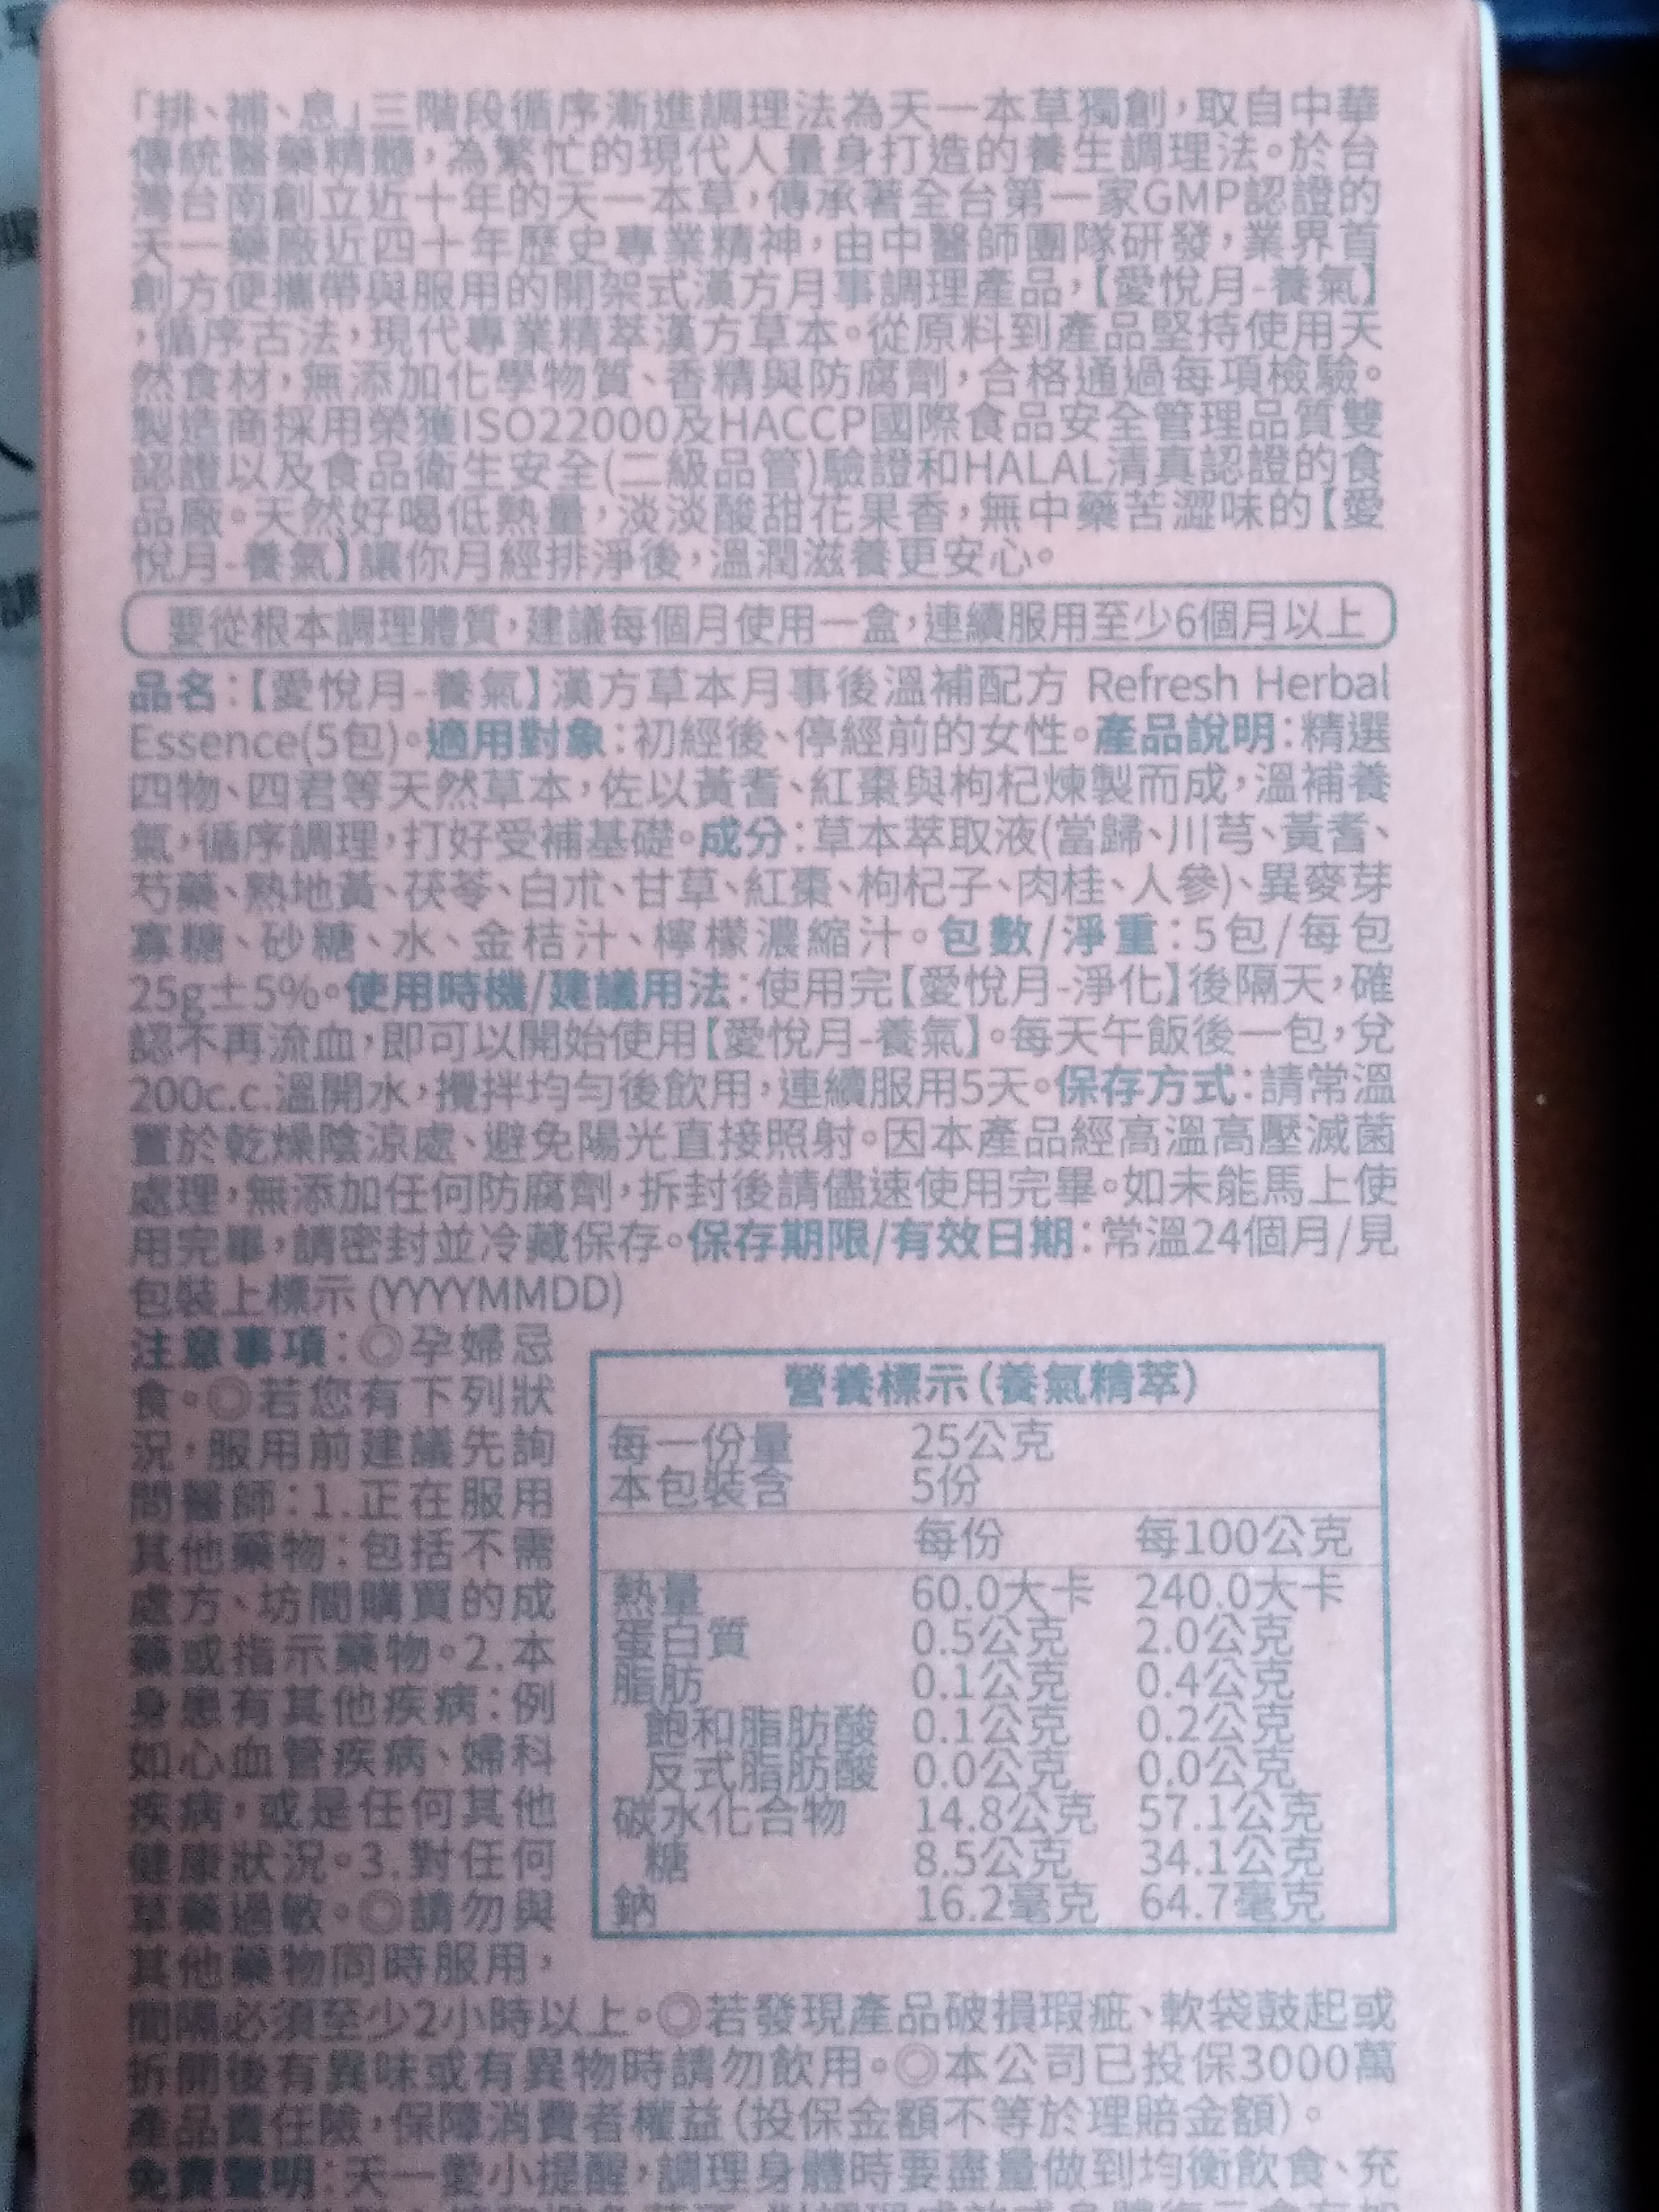 「排、補、息」三階段循序漸進調理法為天一本草獨創，取自中華
傳統醫藥精髓，為繁忙的現代人量身打造的養生調理法。於台
灣台南創立近十年的天一本草，傳承著全台第一家GMP認證的
天一藥廠近四十年歷史專業精神，由中醫師團隊研發，業界首
創方便攜帶與服用的開架式漢方月事調理產品，【愛悅月-養氣】
，循序古法，現代專業精萃漢方草本。從原料到產品堅持使用天
然食材，無添加化學物質、香精與防腐劑，合格通過每項檢驗。
製造商採用榮獲ISO22000及HACCP國際食品安全管理品質雙
認證以及食品衛生安全(二級品管)驗證和HALAL清真認證的食
品廠。天然好喝低熱量，淡淡酸甜花果香，無中藥苦澀味的【愛
悅月-養氣】讓你月經排淨後，溫潤滋養更安心。
要從根本調理體質，建議每個月使用一盒，連續服用至少6個月以上
品名：【愛悅月-養氣】漢方草本月事後溫補配方 Refresh Herbal
Essence(5包)。適用對象：初經後、停經前的女性。產品說明：精選
四物、四君等天然草本，佐以黃耆、紅棗與枸杞煉製而成，溫補養
氣，循序調理，打好受補基礎。成分：草本萃取液(當歸、川芎、黃耆、
芍藥、熟地黃、茯苓、白朮、甘草、紅棗、枸杞子、肉桂、人參)、異麥芽
寡糖、砂糖、水、金桔汁、檸檬濃縮汁。包數/淨重：5包/每包
25g±5%。使用時機/建議用法：使用完【愛悅月-淨化】後隔天，確
認不再流血，即可以開始使用【愛悅月-養氣】。每天午飯後一包，兌
200c.c.溫開水，攪拌均勻後飲用，連續服用5天。保存方式：請常溫
置於乾燥陰涼處、避免陽光直接照射。因本產品經高溫高壓滅菌
處理，無添加任何防腐劑，拆封後請儘速使用完畢。如未能馬上使
用完畢，請密封並冷藏保存。保存期限/有效日期：常溫24個月/見
包裝上標示 (YYYYMMDD)
注意事項：◎孕婦忌
食。◎若您有下列狀
況，服用前建議先詢
問醫師：1.正在服用
其他藥物：包括不需
處方、坊間購買的成
藥或指示藥物。2.本
身患有其他疾病：例
如心血管疾病、婦科
疾病，或是任何其他
健康狀況。3.對任何
草藥過敏。◎請勿與
其他藥物同時服用，
間隔必須至少2小時以上。◎若發現產品破損瑕疵、軟袋鼓起或
拆開後有異味或有異物時請勿飲用。◎本公司已投保3000萬
產品責任險，保障消費者權益(投保金額不等於理賠金額)。
免責聲明：天一愛小提醒，調理身體時要盡量做到均衡飲食、充
營養標示(養氣精萃)
每一份量 25公克
本包裝含 5份
每份 每100公克
熱量 60.0大卡 240.0大卡
蛋白質 0.5公克 2.0公克
脂肪 0.1公克 0.4公克
飽和脂肪酸 0.1公克 0.2公克
反式脂肪酸 0.0公克 0.0公克
碳水化合物 14.8公克 57.1公克
糖 8.5公克 34.1公克
鈉 16.2毫克 64.7毫克